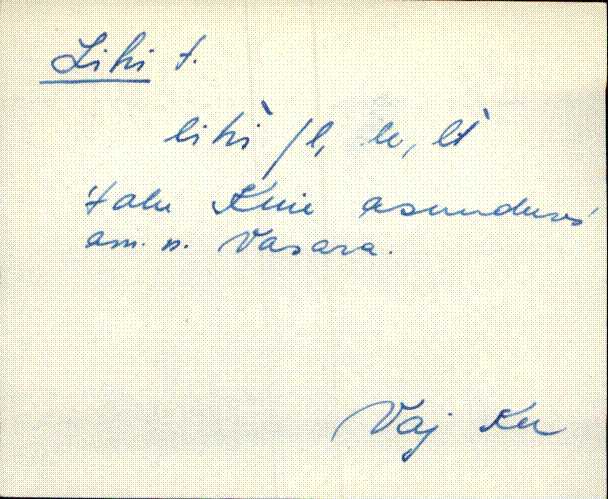 Liki t.
liki /l, le, li
talu Kuie asunduses
am. n. Vasara.
Vaj Ku